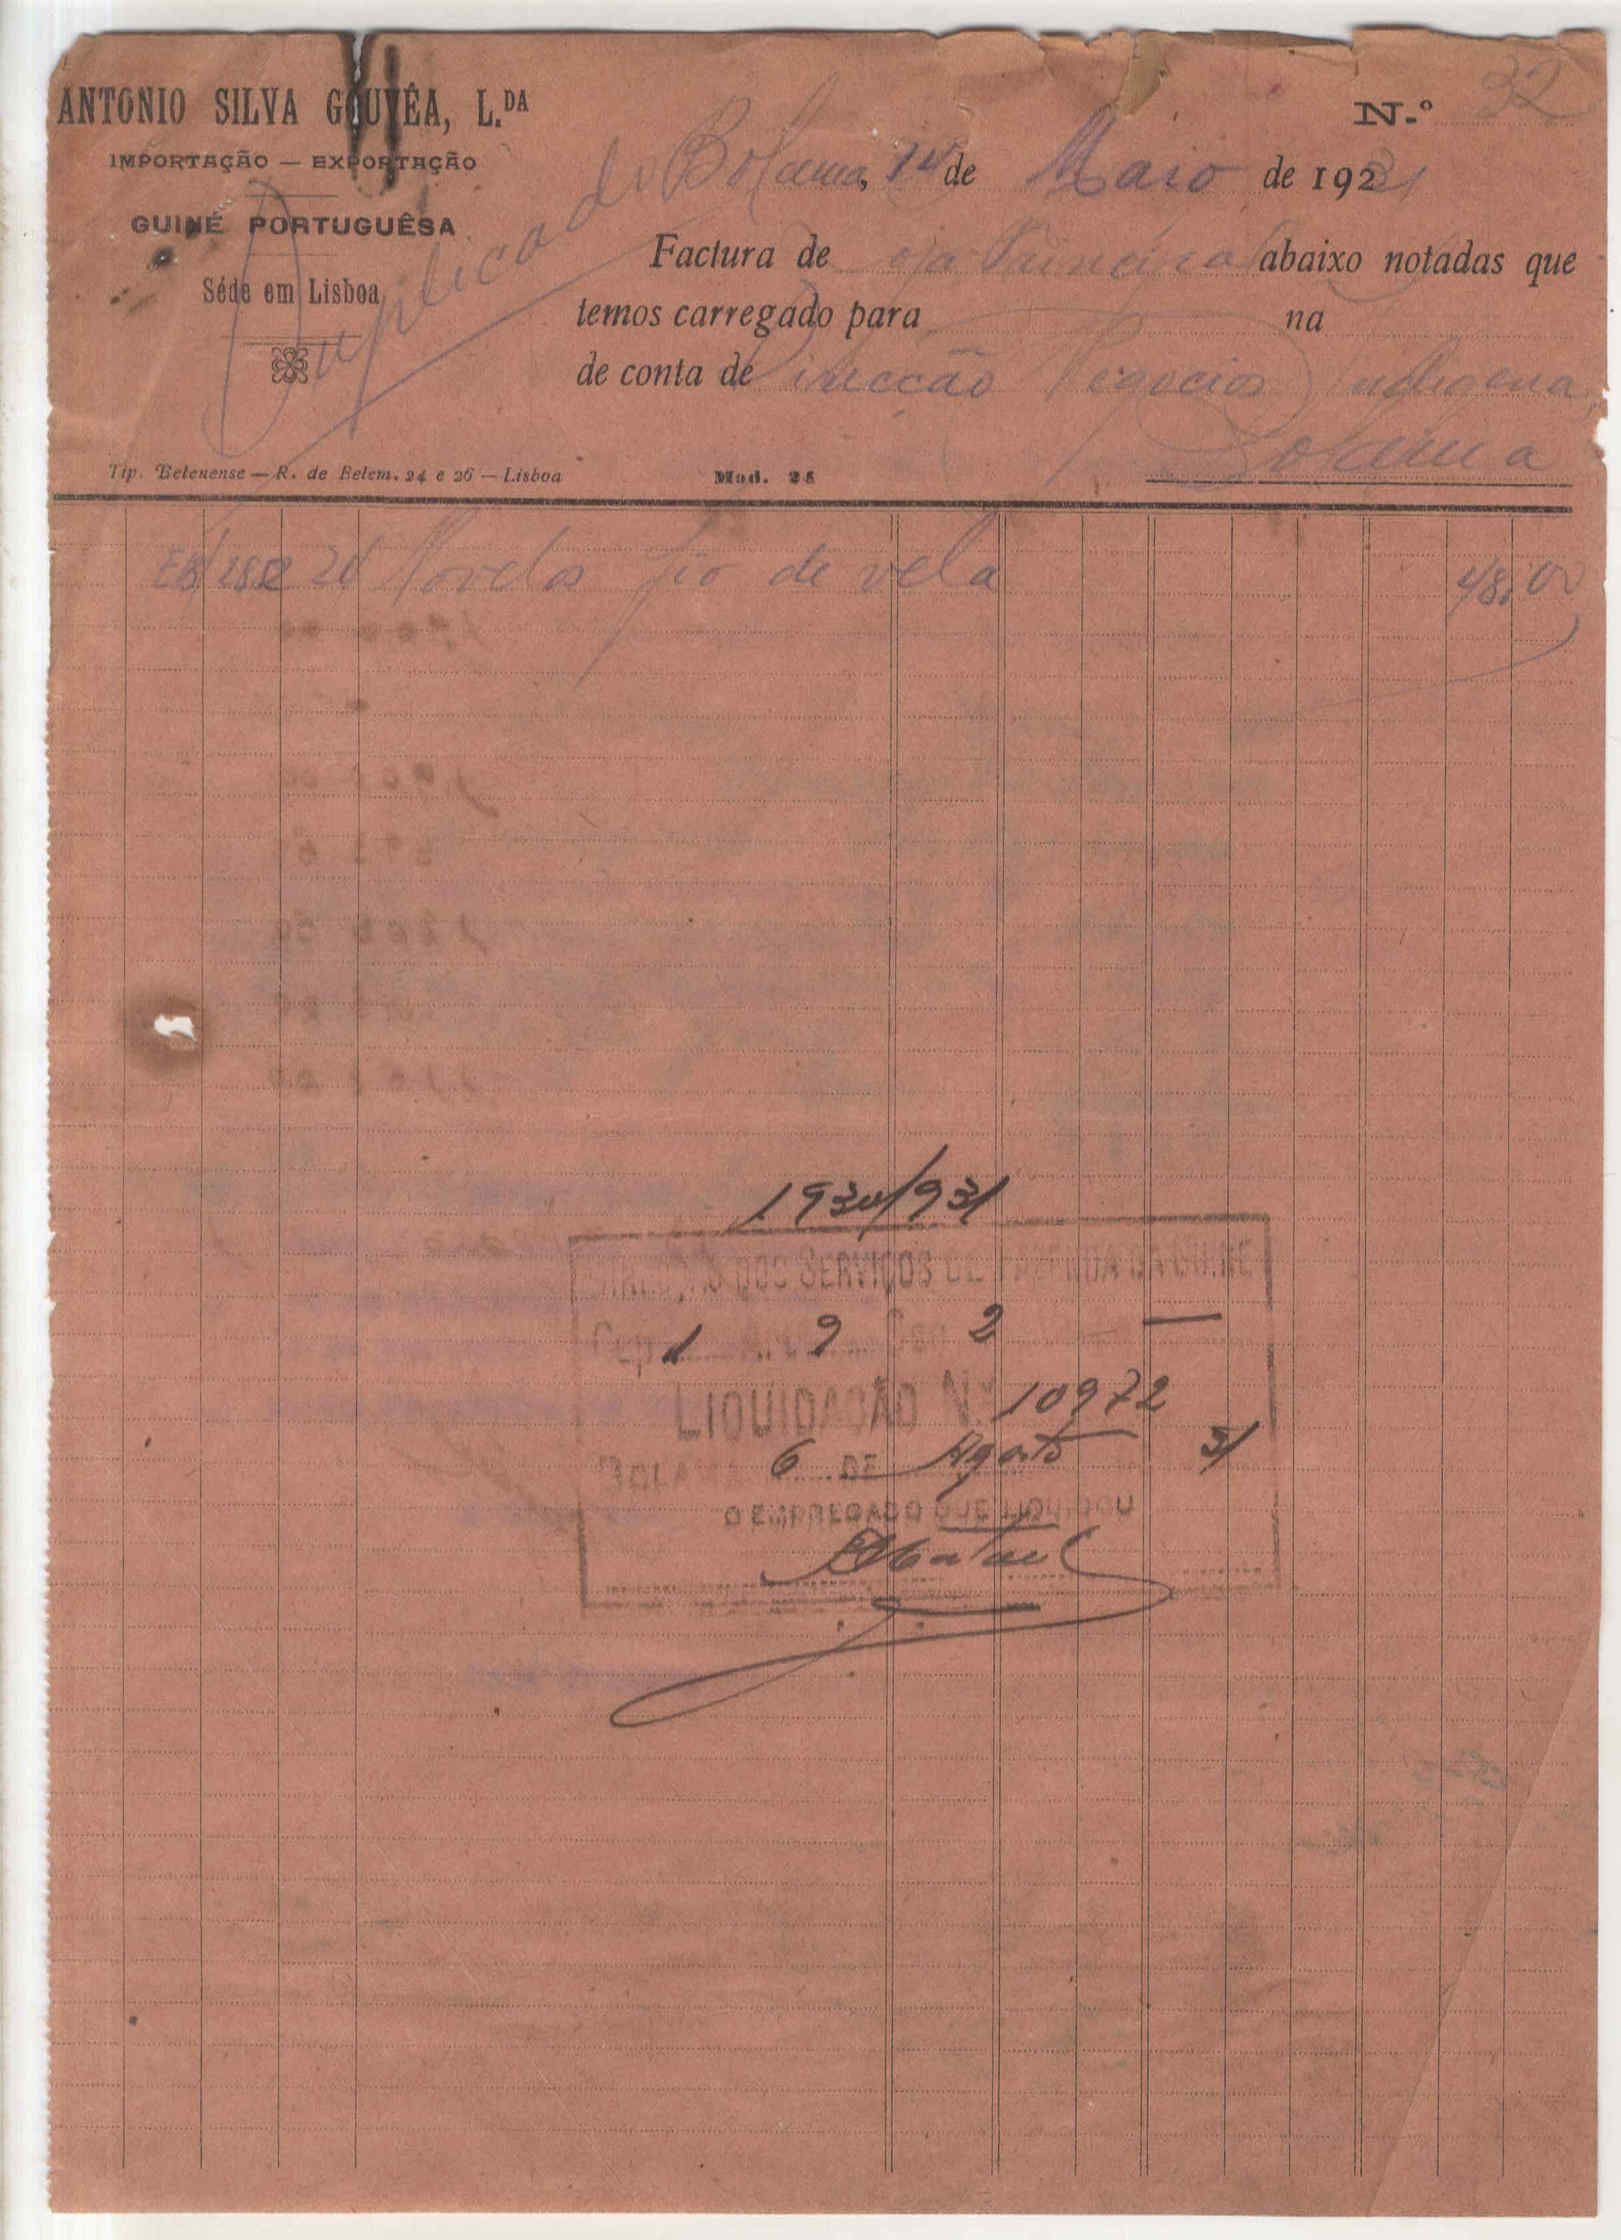 ANTONIO SILVA GOUVÊA, L.DA
IMPORTAÇÃO — EXPORTAÇÃO
GUINÉ PORTUGUÊSA
Séde em Lisboa
Duplicado
N.º 32
Bolama, 14 de Maio de 1931
Factura de abaixo notadas que
temos carregado para na
de conta de Direcção Negocios Indigena
Bolama
Tip. Belenense — R. de Belem, 24 e 26 — Lisboa
Mod. 25
20 Novelos fio de vela 48,00
1930/931
DIRECÇÃO DOS SERVIÇOS DE FAZENDA DA GUINÉ
Cap. 1 Art. 9 2 —
LIQUIDAÇÃO N.º 10972
BOLAMA 6 DE Agosto 31
O EMPREGADO QUE LIQUIDOU